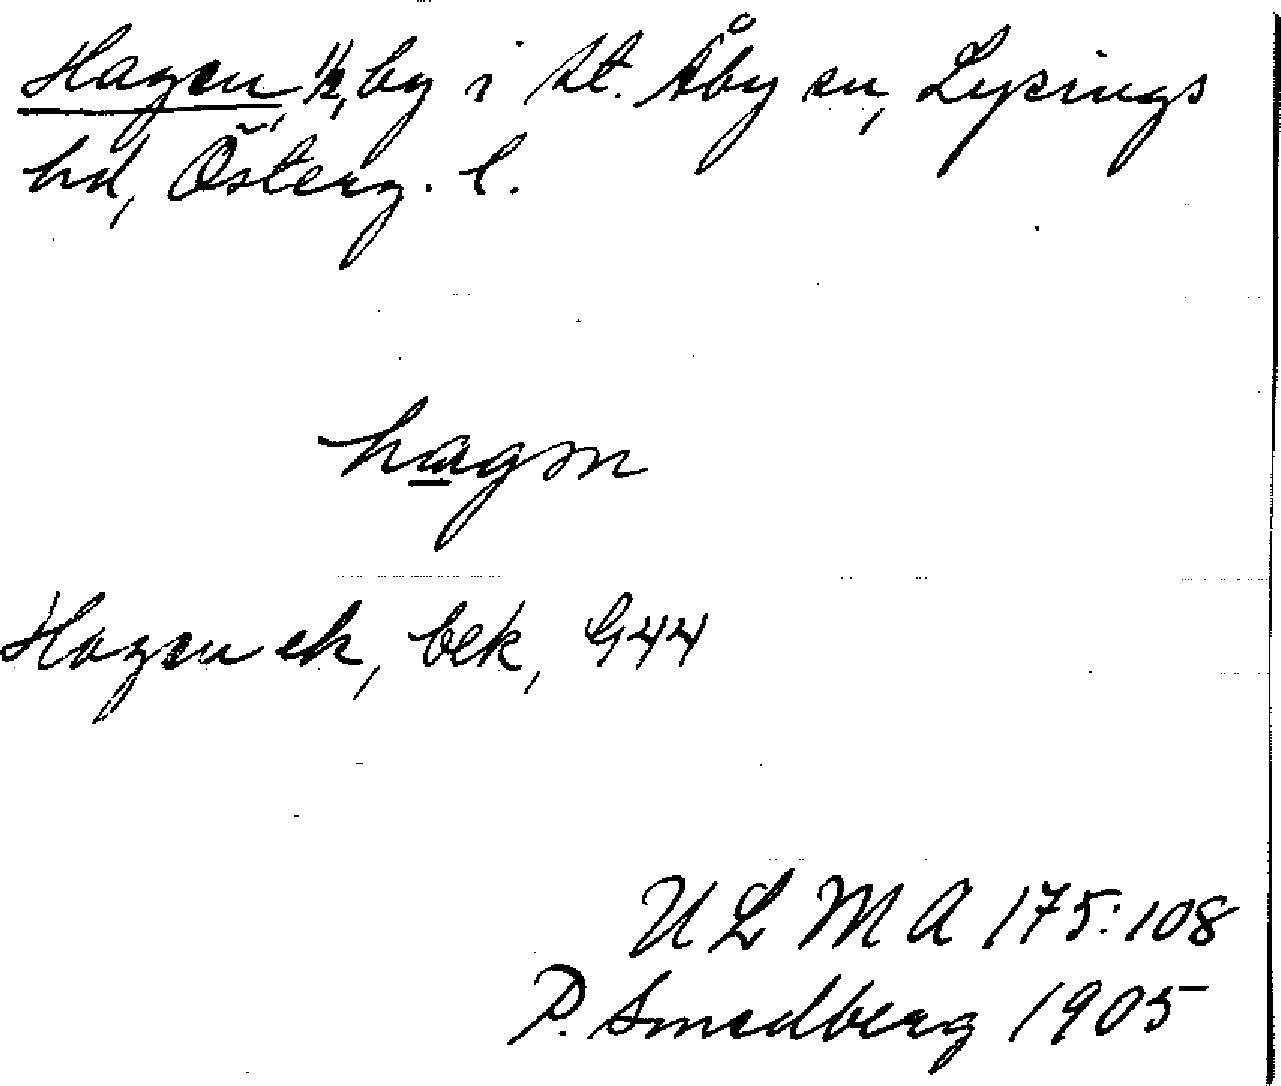 Hagen, ½, by i St. Åby sn, Lysings
hd, Österg. l.
hagən
Hagen ek, bek, G44
ULMA 175:108
P. Smedberg 1905